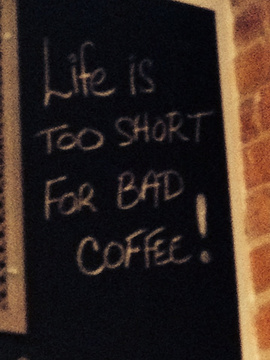 Life is
TOO SHORT
FOR BAD
COFFEE!